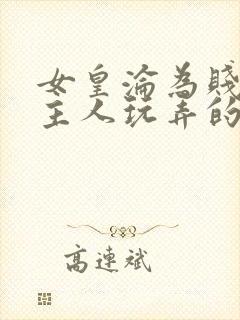 女皇淪為賤
主人玩弄的
高連斌